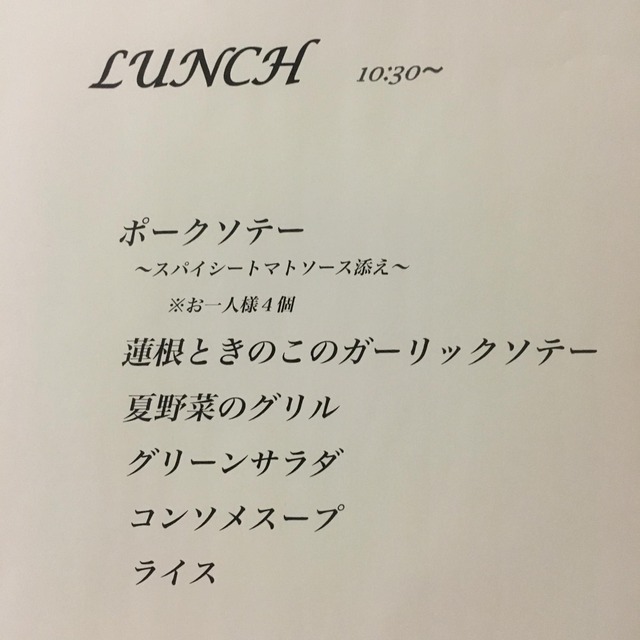 LUNCH 10:30～
ポークソテー
～スパイシートマトソース添え～
※お一人様４個
蓮根ときのこのガーリックソテー
夏野菜のグリル
グリーンサラダ
コンソメスープ
ライス